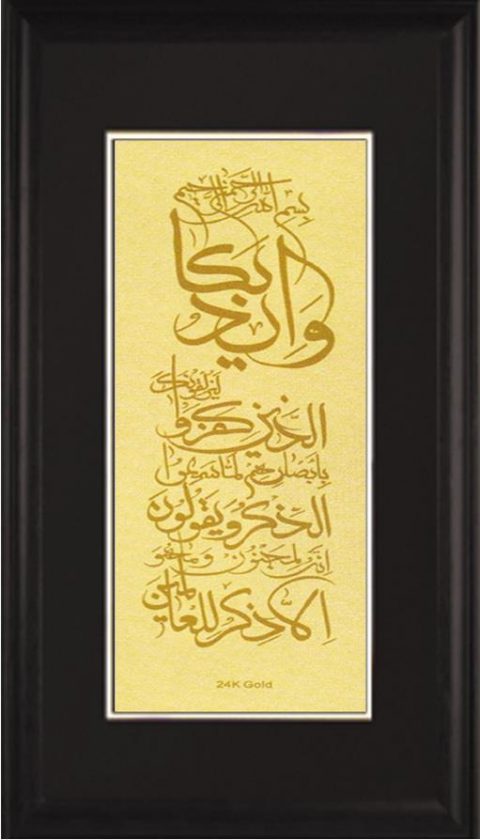 بسم الله الرحمن الرحيم
وان يكاد
الذين كفروا ليزلقونك
بابصارهم لما سمعوا
الذكر ويقولون
انه لمجنون وما هو
الا ذكر للعالمين
24K Gold